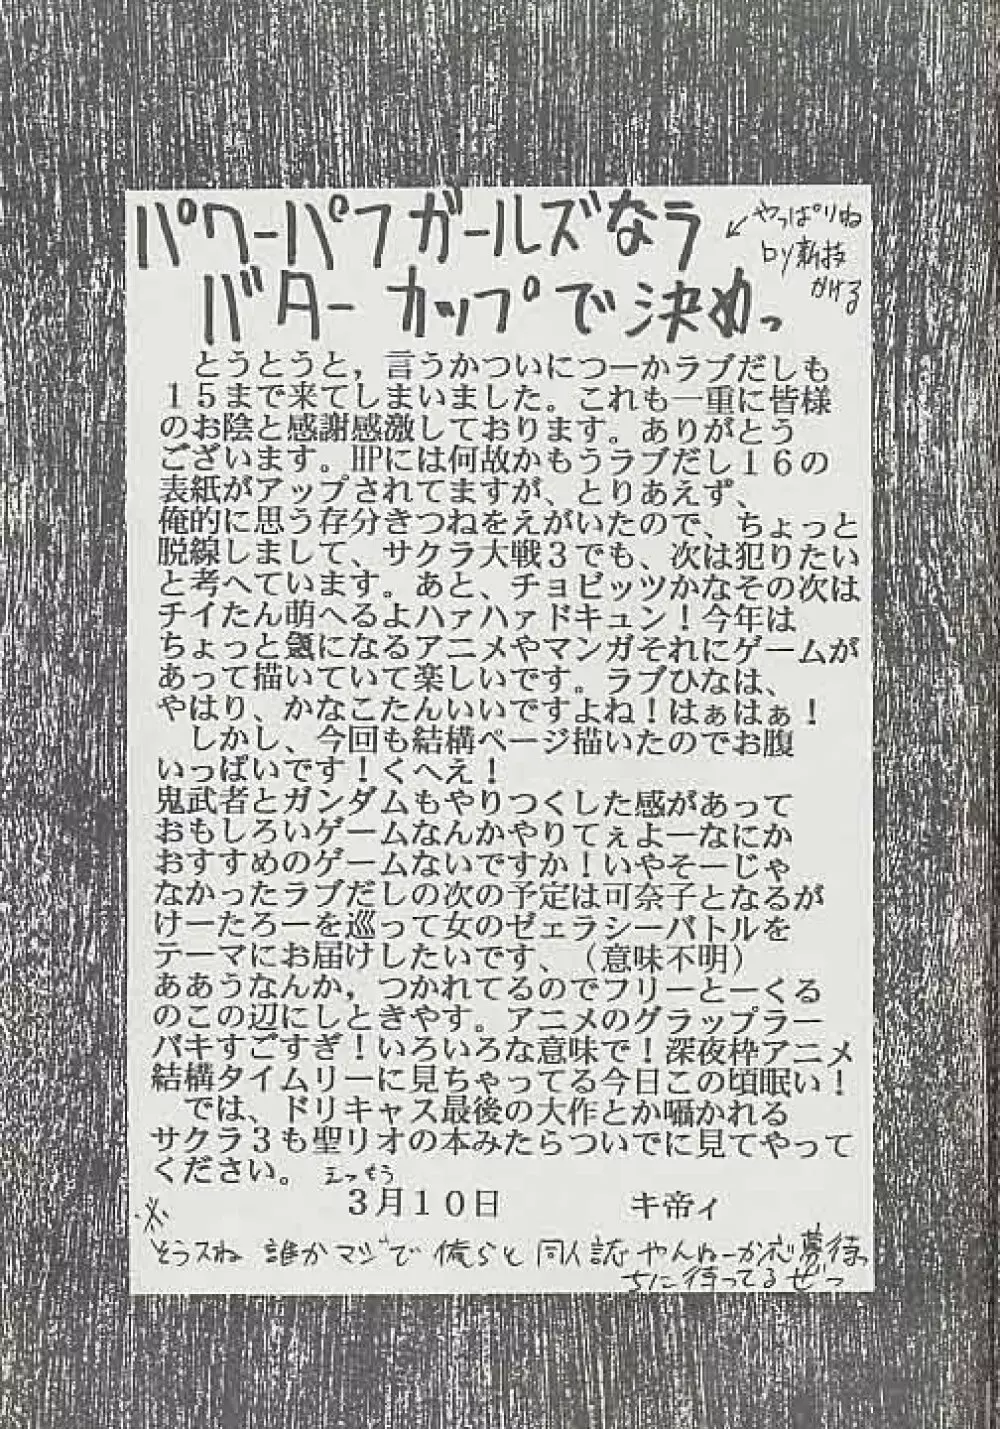 パワーパフガールズなら
バターカップで決めっ
←やっぱりね
ロリ新技
かける
とうとうと，言うかついにつーかラブだしも
１５まで来てしまいました。これも一重に皆様
のお陰と感謝感激しております。ありがとう
ございます。HPには何故かもうラブだし１６の
表紙がアップされてますが、とりあえず、
俺的に思う存分きつねをえがいたので、ちょっと
脱線しまして、サクラ大戦３でも、次は犯りたい
と考へています。あと、チョビッツかなその次は
チイたん萌へるよハァハァドキュン！今年は
ちょっと氣になるアニメやマンガそれにゲームが
あって描いていて楽しいです。ラブひなは、
やはり、かなこたんいいですよね！はぁはぁ！
しかし、今回も結構ページ描いたのでお腹
いっぱいです！くへえ！
鬼武者とガンダムもやりつくした感があって
おもしろいゲームなんかやりてぇよーなにか
おすすめのゲームないですか！いやそーじゃ
なかったラブだしの次の予定は可奈子となるが
けーたろーを巡って女のゼェラシーバトルを
テーマにお届けしたいです、（意味不明）
ああうなんか，つかれてるのでフリーとーくる
のこの辺にしときやす。アニメのグラップラー
バキすごすぎ！いろいろな意味で！深夜枠アニメ
結構タイムリーに見ちゃってる今日この頃眠い！
では、ドリキャス最後の大作とか囁かれる
サクラ３も聖リオの本みたらついでに見てやって
ください。えっもう
３月１０日 キ帝ィ
※
そうスね 誰かマジで俺らと同人誌やんねーか応募待っ
ちに待ってるぜっ